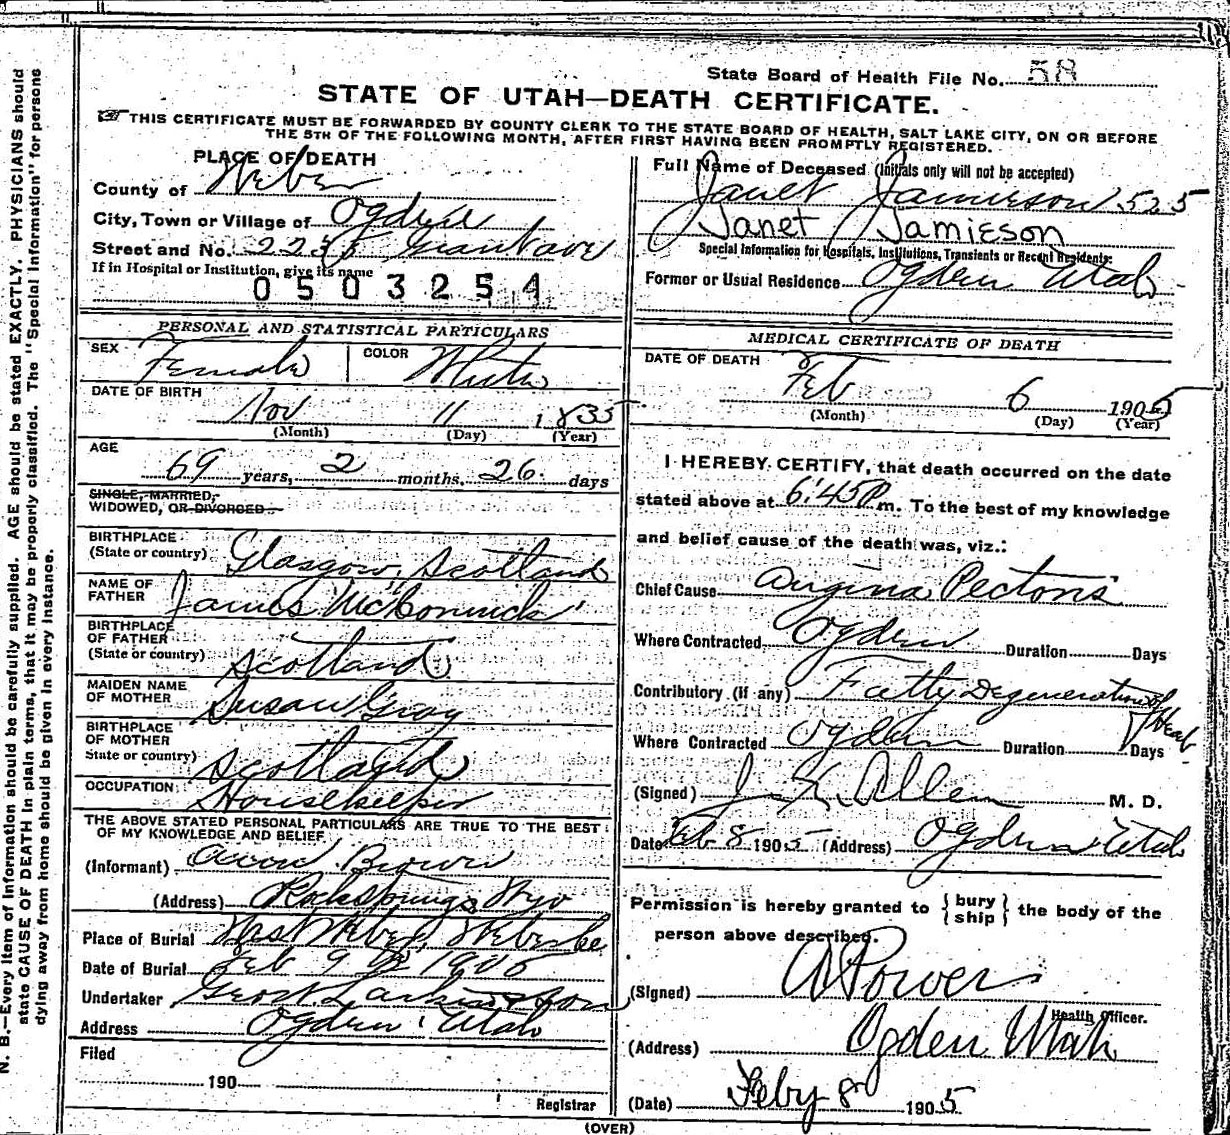 State Board of Health File No. 58
STATE OF UTAH—DEATH CERTIFICATE.
THIS CERTIFICATE MUST BE FORWARDED BY COUNTY CLERK TO THE STATE BOARD OF HEALTH, SALT LAKE CITY, ON OR BEFORE
THE 5TH OF THE FOLLOWING MONTH, AFTER FIRST HAVING BEEN PROMPTLY REGISTERED.
PLACE OF DEATH
County of Weber
City, Town or Village of Ogden
Street and No. Grant ave
If in Hospital or Institution, give its name
0503254
PERSONAL AND STATISTICAL PARTICULARS
SEX Female COLOR White
DATE OF BIRTH
Nov 11 1835
(Month) (Day) (Year)
AGE
69 years, 2 months, 26 days
SINGLE, MARRIED,
WIDOWED, OR DIVORCED
BIRTHPLACE
(State or country) Glasgow, Scotland
NAME OF
FATHER James McCormick
BIRTHPLACE
OF FATHER
(State or country) Scotland
MAIDEN NAME
OF MOTHER Susan Gray
BIRTHPLACE
OF MOTHER
State or country) Scotland
OCCUPATION Housekeeper
THE ABOVE STATED PERSONAL PARTICULARS ARE TRUE TO THE BEST
OF MY KNOWLEDGE AND BELIEF
(Informant) Brown
(Address) Rocksprings Wyo
Place of Burial West Weber,
Date of Burial Feb 9 1905
Undertaker Larkin & Son
Address Ogden Utah
Filed
190
Registrar
Full Name of Deceased (Initials only will not be accepted)
Janet Jamieson 525
Janet Jamieson
Special Information for Hospitals, Institutions, Transients or Recent Residents:
Former or Usual Residence Ogden Utah
MEDICAL CERTIFICATE OF DEATH
DATE OF DEATH
Feb 6 1905
(Month) (Day) (Year)
I HEREBY CERTIFY, that death occurred on the date
stated above at 6:45 P m. To the best of my knowledge
and belief cause of the death was, viz.:
Chief Cause Angina Pectoris
Where Contracted Ogden Duration Days
Contributory (if any) Fatty Degeneration of Heart
Where Contracted Ogden Duration Days
(Signed) Allen M. D.
Date Feb 8 1905 (Address) Ogden Utah
Permission is hereby granted to { bury
ship } the body of the
person above described.
(Signed) A Power
Health Officer.
(Address) Ogden Utah
(Date) Feby 8 1905
(OVER)
N. B.—Every item of information should be carefully supplied. AGE should be stated EXACTLY. PHYSICIANS should
state CAUSE OF DEATH in plain terms, that it may be properly classified. The "Special Information" for persons
dying away from home should be given in every instance.